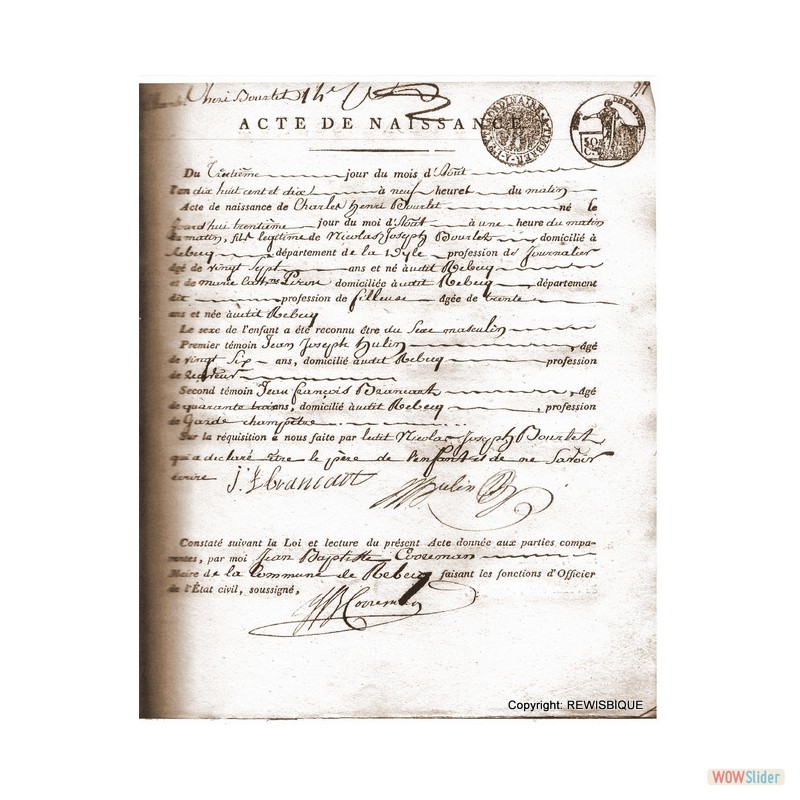 Charles Henri Bourlet
ACTE DE NAISSANCE
Du Trentième jour du mois d'Août
l'an dix huit cent et dix à neuf heures du matin
Acte de naissance de Charles Henri Bourlet né le
jourd'hui trentième jour du moi d'Août à une heure du matin
du matin, fils legitime de Nicolas Joseph Bourlet, domicilié à
Rebecq département de la Dyle profession de Journalier
âgé de vingt Sept ans et né àudit Rebecq
et de marie domiciliée àudit Rebecq, département
dit profession de fileuse âgée de trente
ans et née àudit Rebecq
Le sexe de l'enfant a été reconnu être du Sexe masculin
Premier témoin Jean Joseph Hulin, âgé
de vingt Six ans, domicilié audit Rebecq profession
de
Second témoin Jean françois Brancart, âgé
de quarante trois ans, domicilié audit Rebecq, profession
de Garde champêtre
Sur la réquisition à nous faite par ledit Nicolas Joseph Bourlet
qui a déclaré être le père de l'enfant et de ne Savoir
écrire
Constaté suivant la Loi et lecture du présent Acte donnée aux parties compa-
rantes, par moi Jean Baptiste Cooreman
Maire de la Commune de Rebecq faisant les fonctions d'Officier
de l'État civil, soussigné,
Copyright: REWISBIQUE
WOWSlider